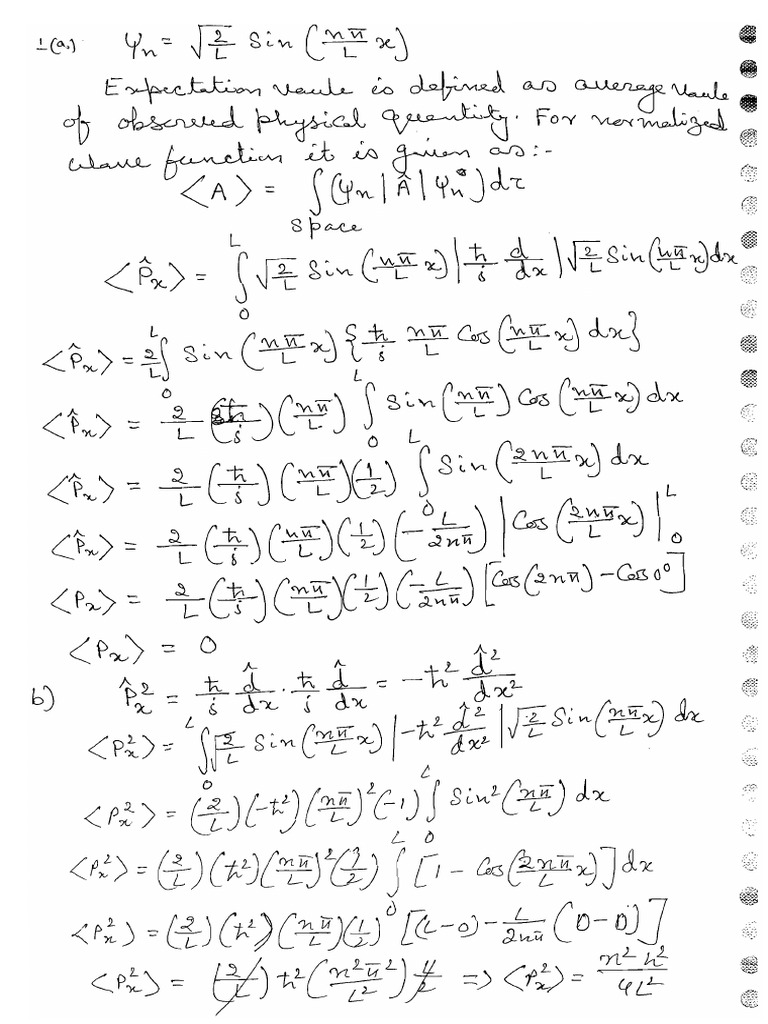 1(a.) Ψn = √(2/L) Sin (nπ/L x)
Expectation vaule is defined as average vaule
of observed physical quentity. For normalized
wave function it is given as:-
<A> = ∫ (Ψn | Â | Ψn*) dτ
space
<P̂x> = ∫₀ᴸ √(2/L) Sin (nπ/L x) | ħ/i d/dx | √(2/L) Sin (nπ/L x) dx
<P̂x> = 2/L ∫₀ᴸ Sin (nπ/L x) {ħ/i nπ/L Cos (nπ/L x) dx}
<P̂x> = 2/L (ħ/i) (nπ/L) ∫₀ᴸ Sin (nπ/L) Cos (nπ/L x) dx
<P̂x> = 2/L (ħ/i) (nπ/L) (1/2) ∫₀ᴸ Sin (2nπ/L x) dx
<P̂x> = 2/L (ħ/i) (nπ/L) (1/2) (-L/2nπ) | Cos (2nπ/L x) |₀ᴸ
<Px> = 2/L (ħ/i) (nπ/L) (1/2) (-L/2nπ) [Cos (2nπ) - Cos 0°]
<Px> = 0
b) P̂x² = ħ/i d̂/dx . ħ/i d̂/dx = -ħ² d̂²/dx²
<Px²> = ∫₀ᴸ √(2/L) Sin (nπ/L x) | -ħ² d̂²/dx² | √(2/L) Sin (nπ/L x) dx
<Px²> = (2/L) (-ħ²) (nπ/L)² (-1) ∫₀ᴸ Sin² (nπ/L) dx
<Px²> = (2/L) (ħ²) (nπ/L)² (1/2) ∫₀ᴸ [1 - Cos (2nπ/L x)] dx
<Px²> = (2/L) (ħ²) (nπ/L)² (1/2) [(L-0) - L/2nπ (0-0)]
<Px²> = (2/L) ħ² (n²π²/L²) L/2 => <Px²> = n²h²/4L²